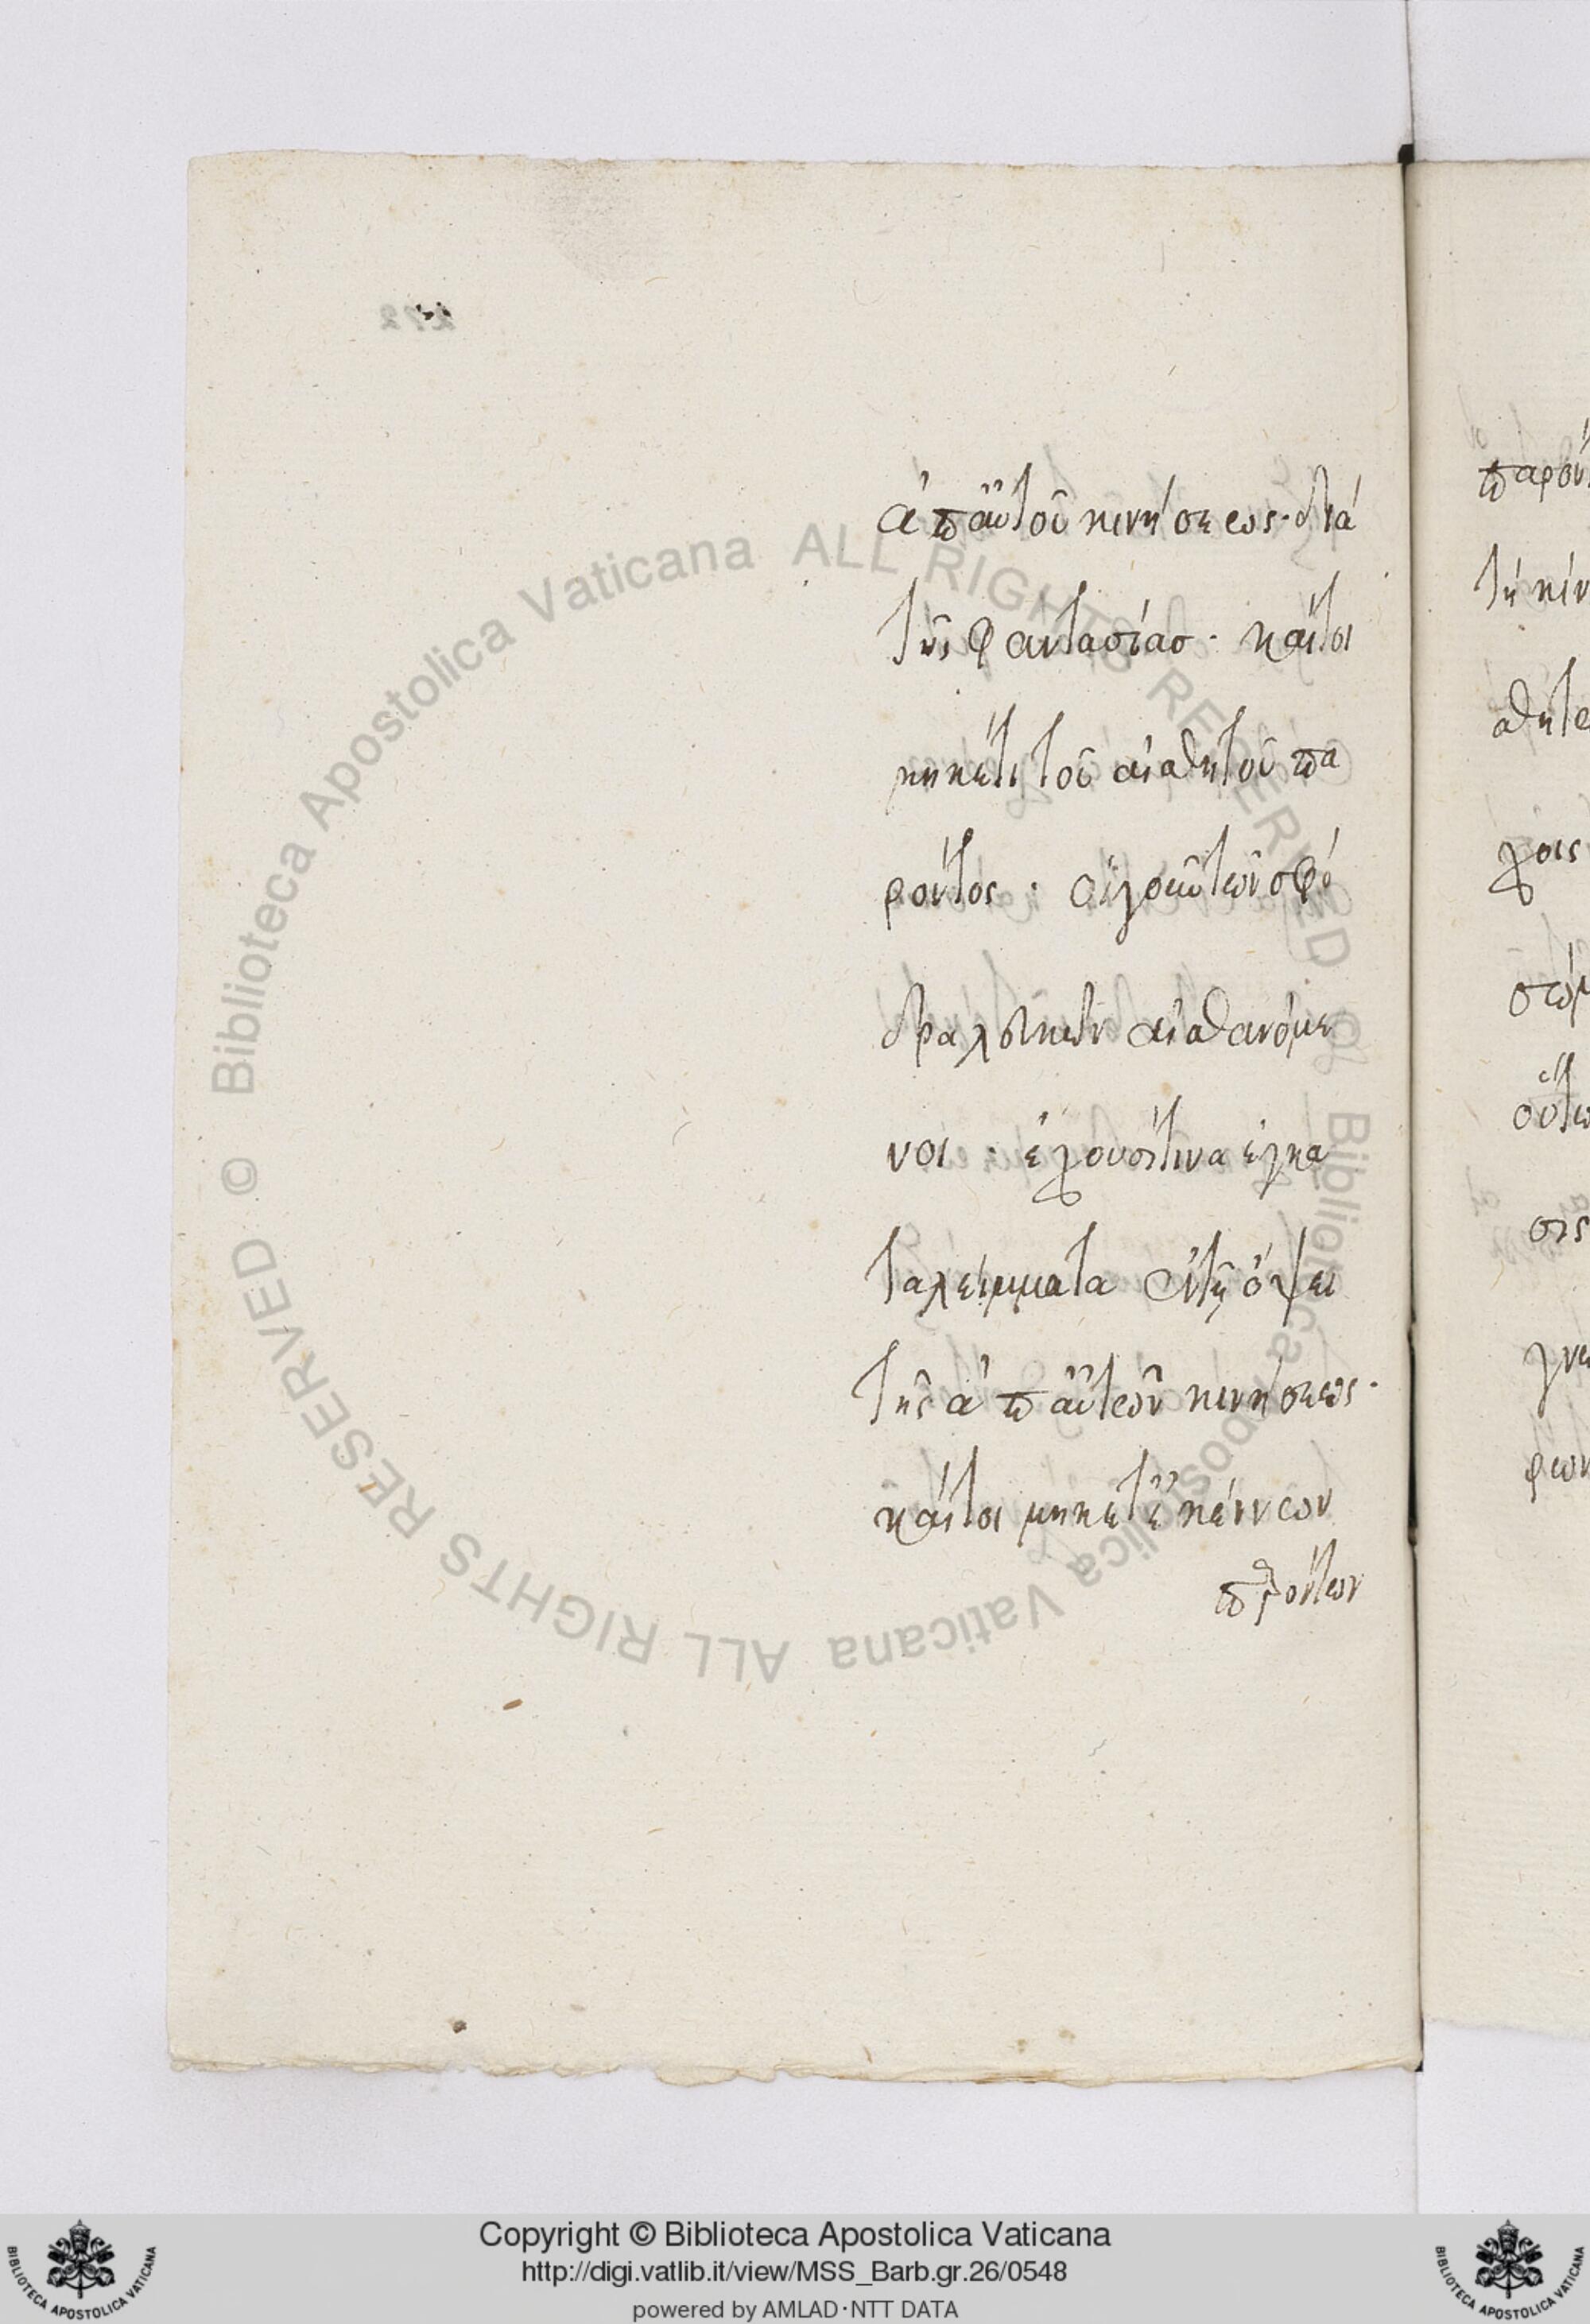 ἀπ αὐτοῦ κινήσεως· διά
τῆς φαντασίας· καίτοι
μηκέτι τοῦ αἰσθητοῦ πα
ρόντος· οἱ γοῦν τῶν σφό
δρα λευκῶν αἰσθανόμε
νοι· ἔχουσί τινα ἐγκα
ταλείμματα ἐν τῇ ὄψει
τῆς ἀπ αὐτῶν κινήσεως·
καίτοι μηκέτ ἐκείνων
παρόντων
παρόν
τῇ κιν
χοις
οὕτω
σις
© Biblioteca Apostolica Vaticana ALL RIGHTS RESERVED © Biblioteca Apostolica Vaticana ALL RIGHTS RESERVED
Copyright © Biblioteca Apostolica Vaticana
http://digi.vatlib.it/view/MSS_Barb.gr.26/0548
powered by AMLAD·NTT DATA
BIBLIOTECA APOSTOLICA VATICANA
BIBLIOTECA APOSTOLICA VATICANA